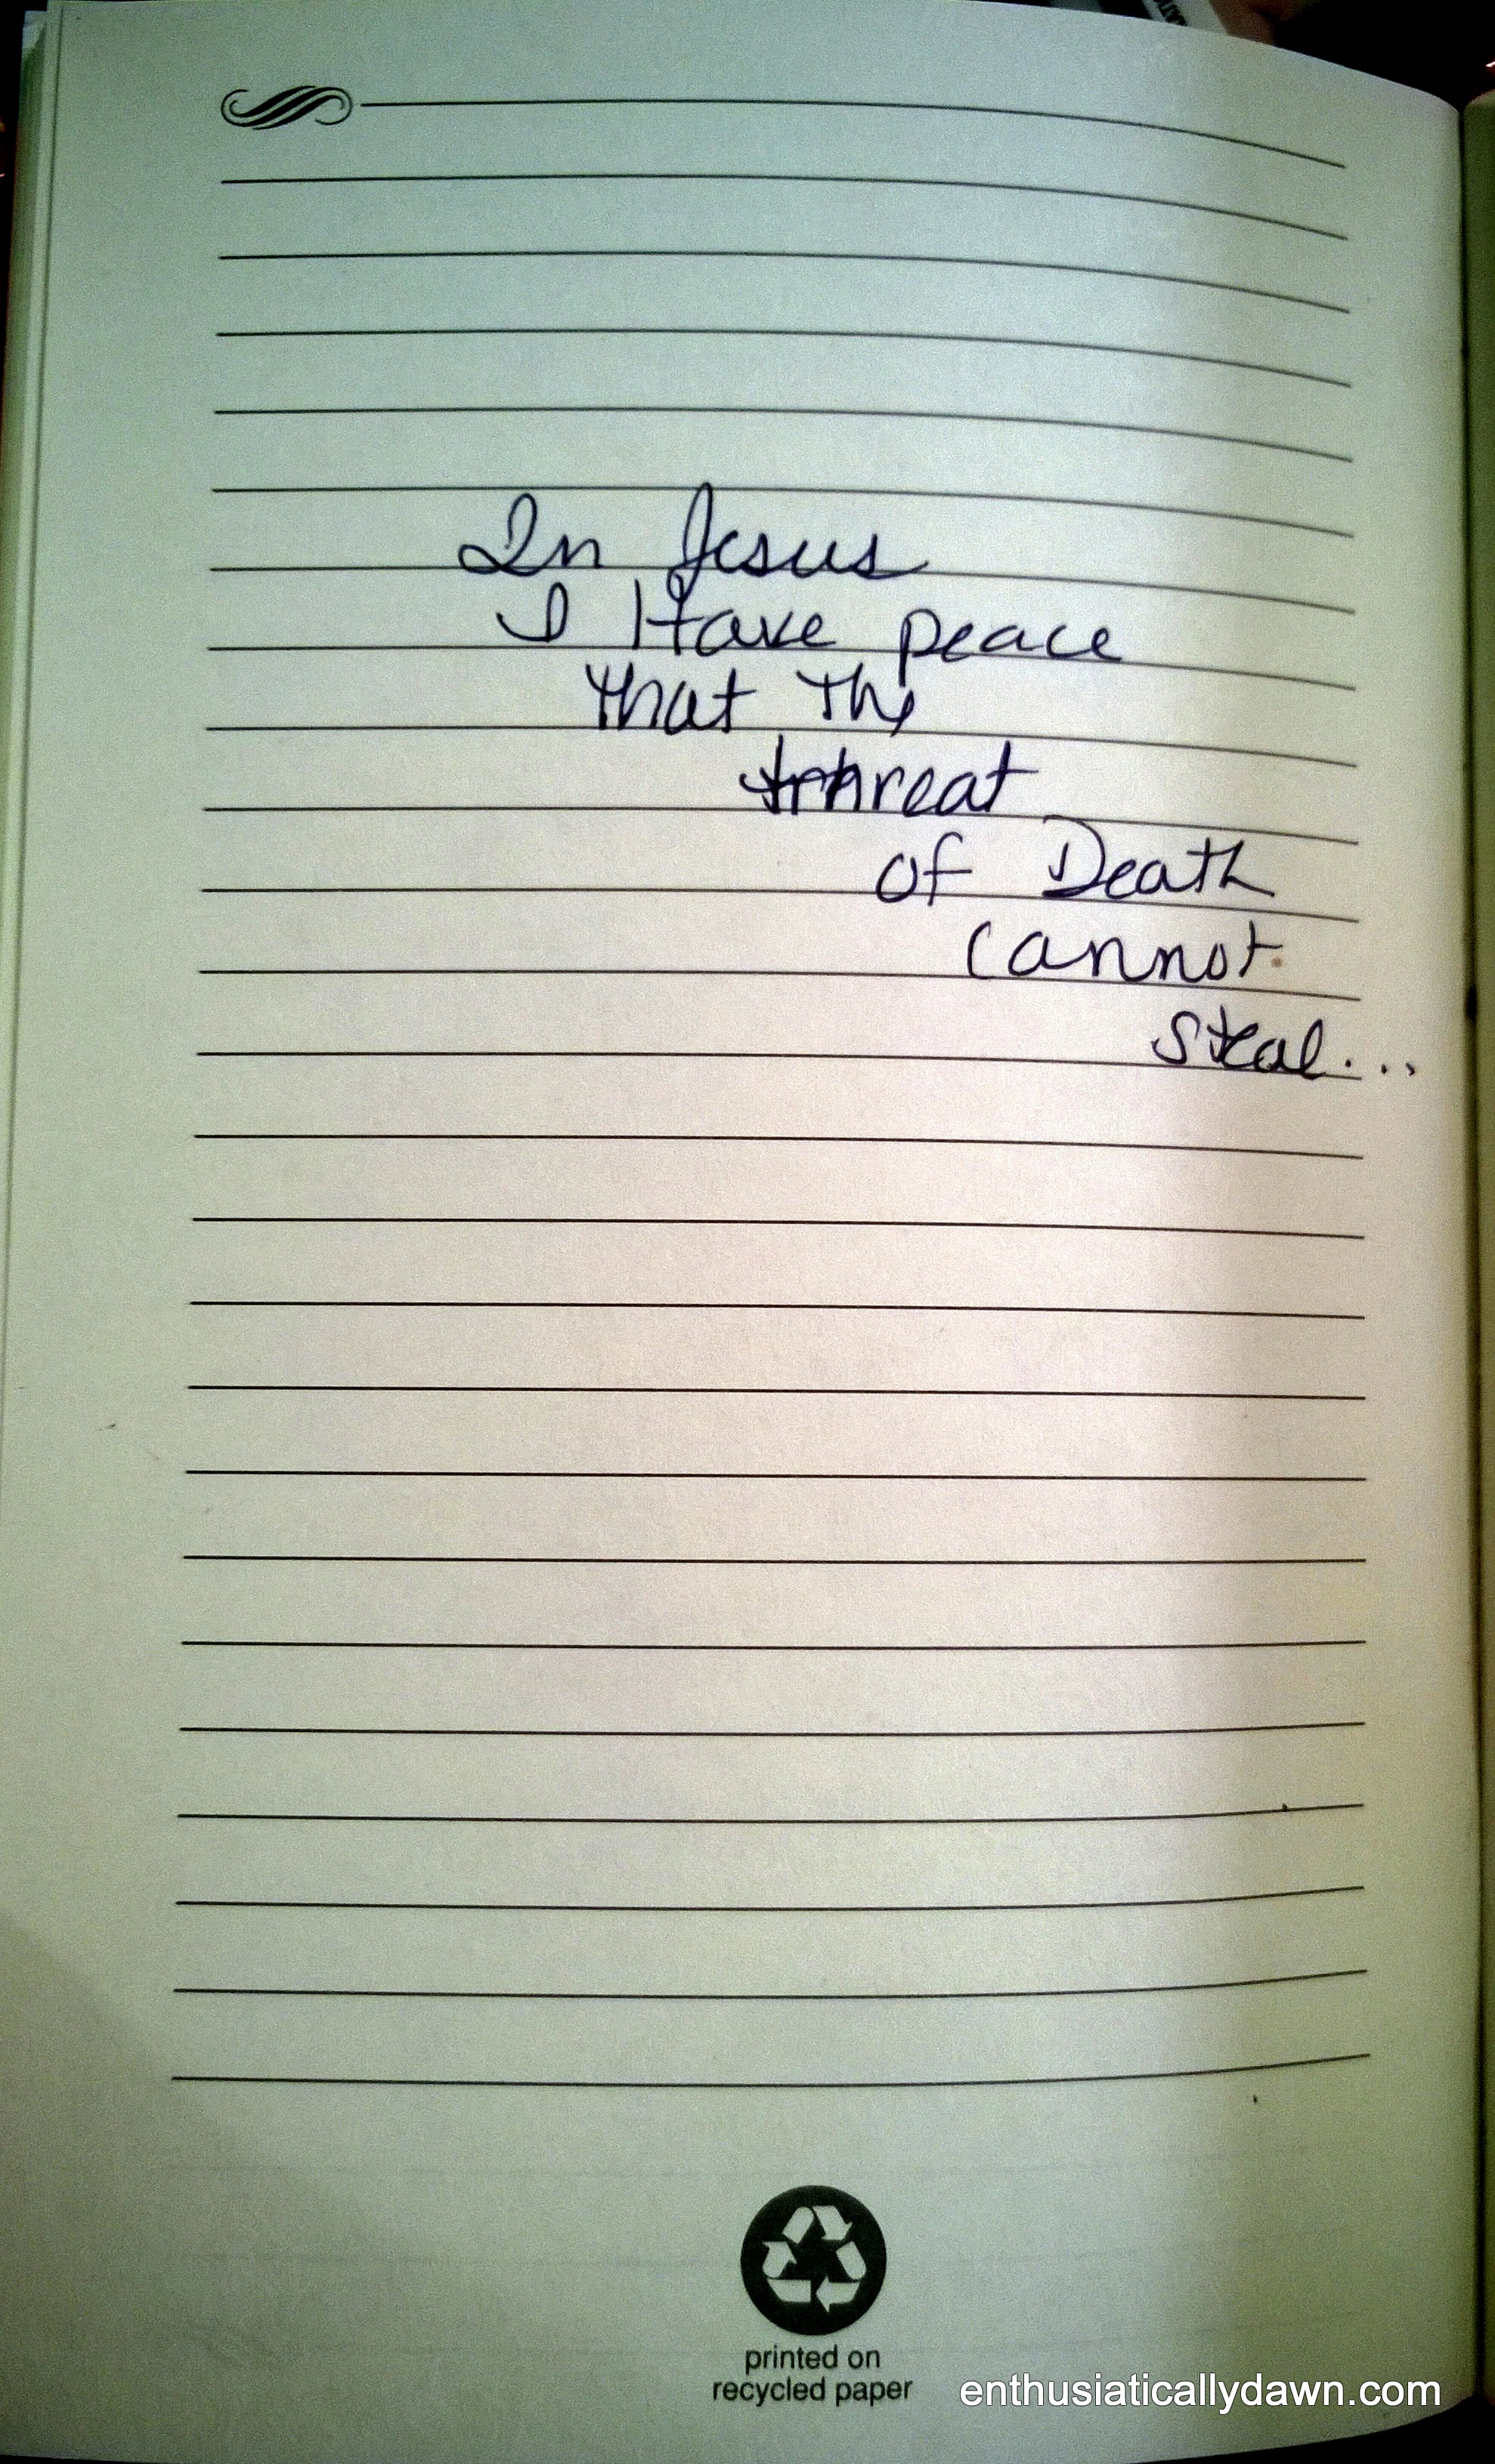 In Jesus
I Have peace
that the
threat
of Death
cannot
steal...
printed on
recycled paper
enthusiaticallydawn.com